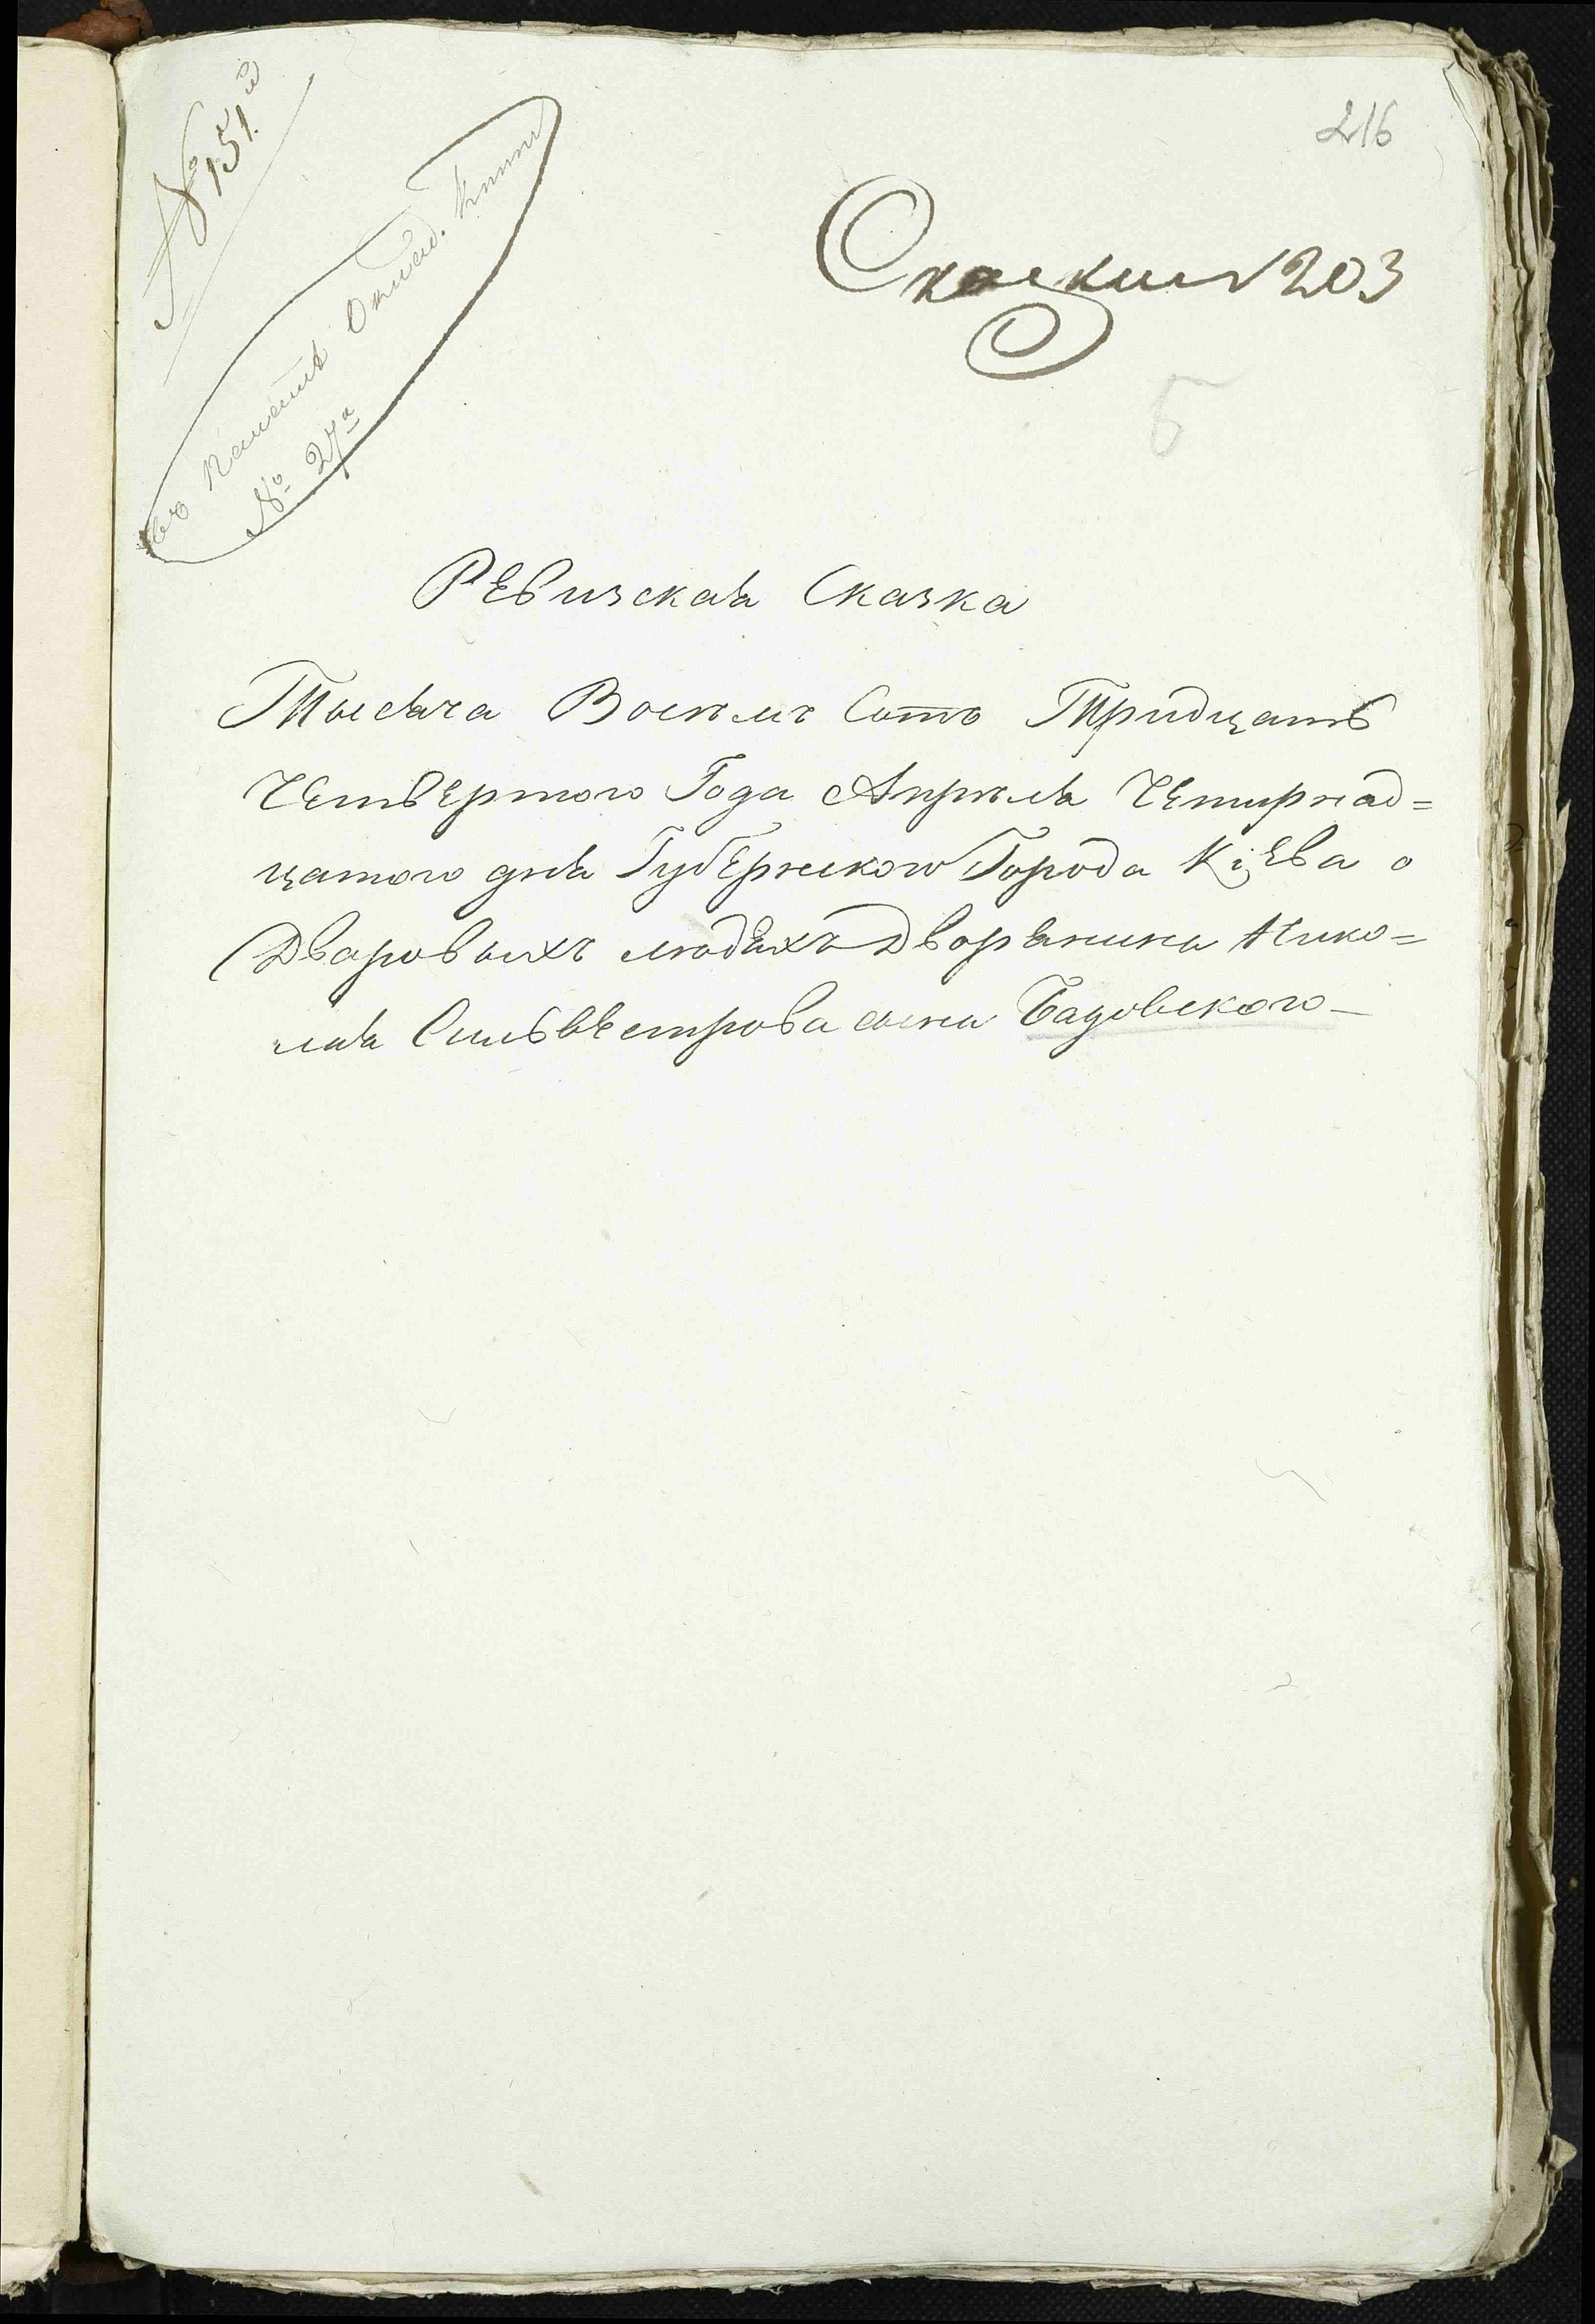 № 151й
216
въ
№ 27а
203
5
Ревизская Сказка
Тысяча Восемъ Сотъ Тридцать
Четвертого Года Апрѣля Четирнад=
цатого дня Губернского Города Кіева о
Дворовыхъ людѣхъ Дворянина Нико=
лая Сильвестрова сына Бадовского